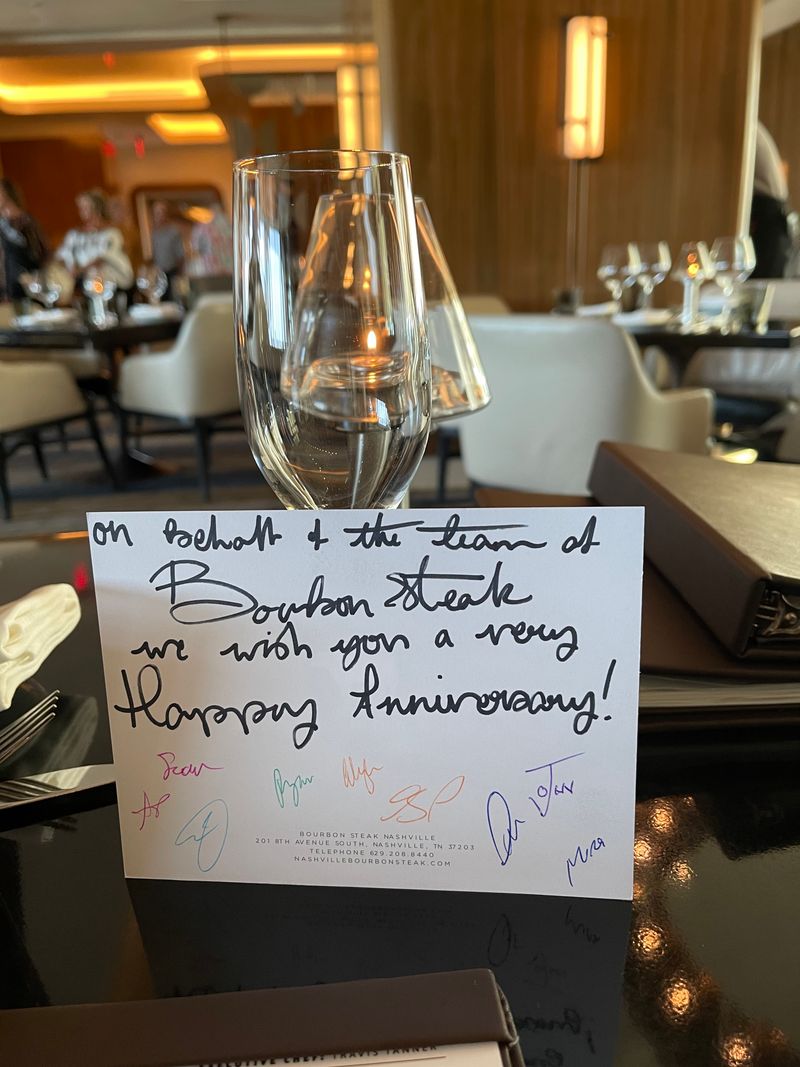 on Behalf of the team at
Bourbon Steak
we wish you a very
Happy Anniversary!
Sean
Ryan
BOURBON STEAK NASHVILLE
201 8TH AVENUE SOUTH, NASHVILLE, TN 37203
TELEPHONE 629.208.8440
NASHVILLEBOURBONSTEAK.COM
EXECUTIVE CHEF: TRAVIS TANNER